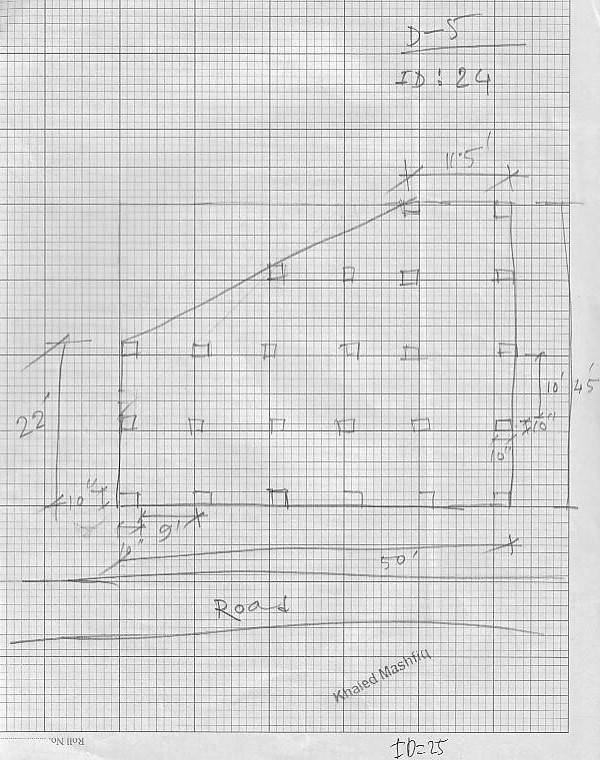 D-5
ID: 24
11.5'
10'
45'
22'
10"
10"
10"
9'
10"
50'
Road
Khaled Mashfiq
Roll No.
ID=25